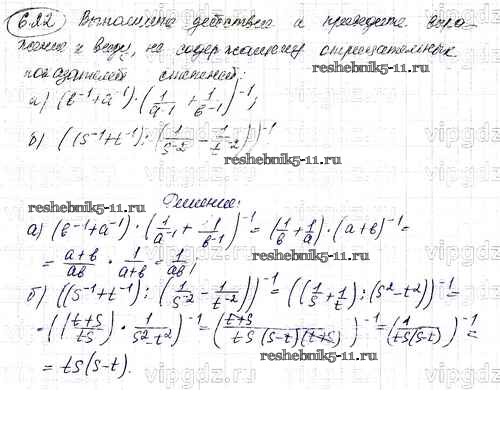 6.22 Выполните действия и приведите выра-
жение к виду, не содержащему отрицательных
показателей степеней:
reshebnik5-11.ru
а) (b⁻¹+a⁻¹)·(1/a⁻¹ + 1/b⁻¹)⁻¹;
б) ((s⁻¹+t⁻¹):(1/s⁻² − 1/t⁻²))⁻¹
reshebnik5-11.ru
Решение:
reshebnik5-11.ru
а) (b⁻¹+a⁻¹)·(1/a⁻¹ + 1/b⁻¹)⁻¹ = (1/b + 1/a)·(a+b)⁻¹ =
= (a+b)/(ab) · 1/(a+b) = 1/(ab);
reshebnik5-11.ru
б) ((s⁻¹+t⁻¹):(1/s⁻² − 1/t⁻²))⁻¹ = ((1/s + 1/t):(s²−t²))⁻¹ =
= ((t+s)/(ts) · 1/(s²−t²))⁻¹ = ((t+s)/(ts(s−t)(t+s)))⁻¹ = (1/(ts(s−t)))⁻¹ =
= ts(s−t).
reshebnik5-11.ru
vipgdz.ru